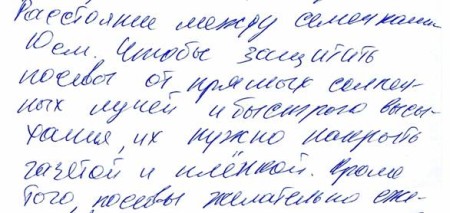 Расстояние между семенами
10см. Чтобы защитить
посевы от прямых солнеч-
ных лучей и быстрого высы-
хания, их нужно накрыть
газетой и плёнкой. Кроме
того, посевы желательно еже-